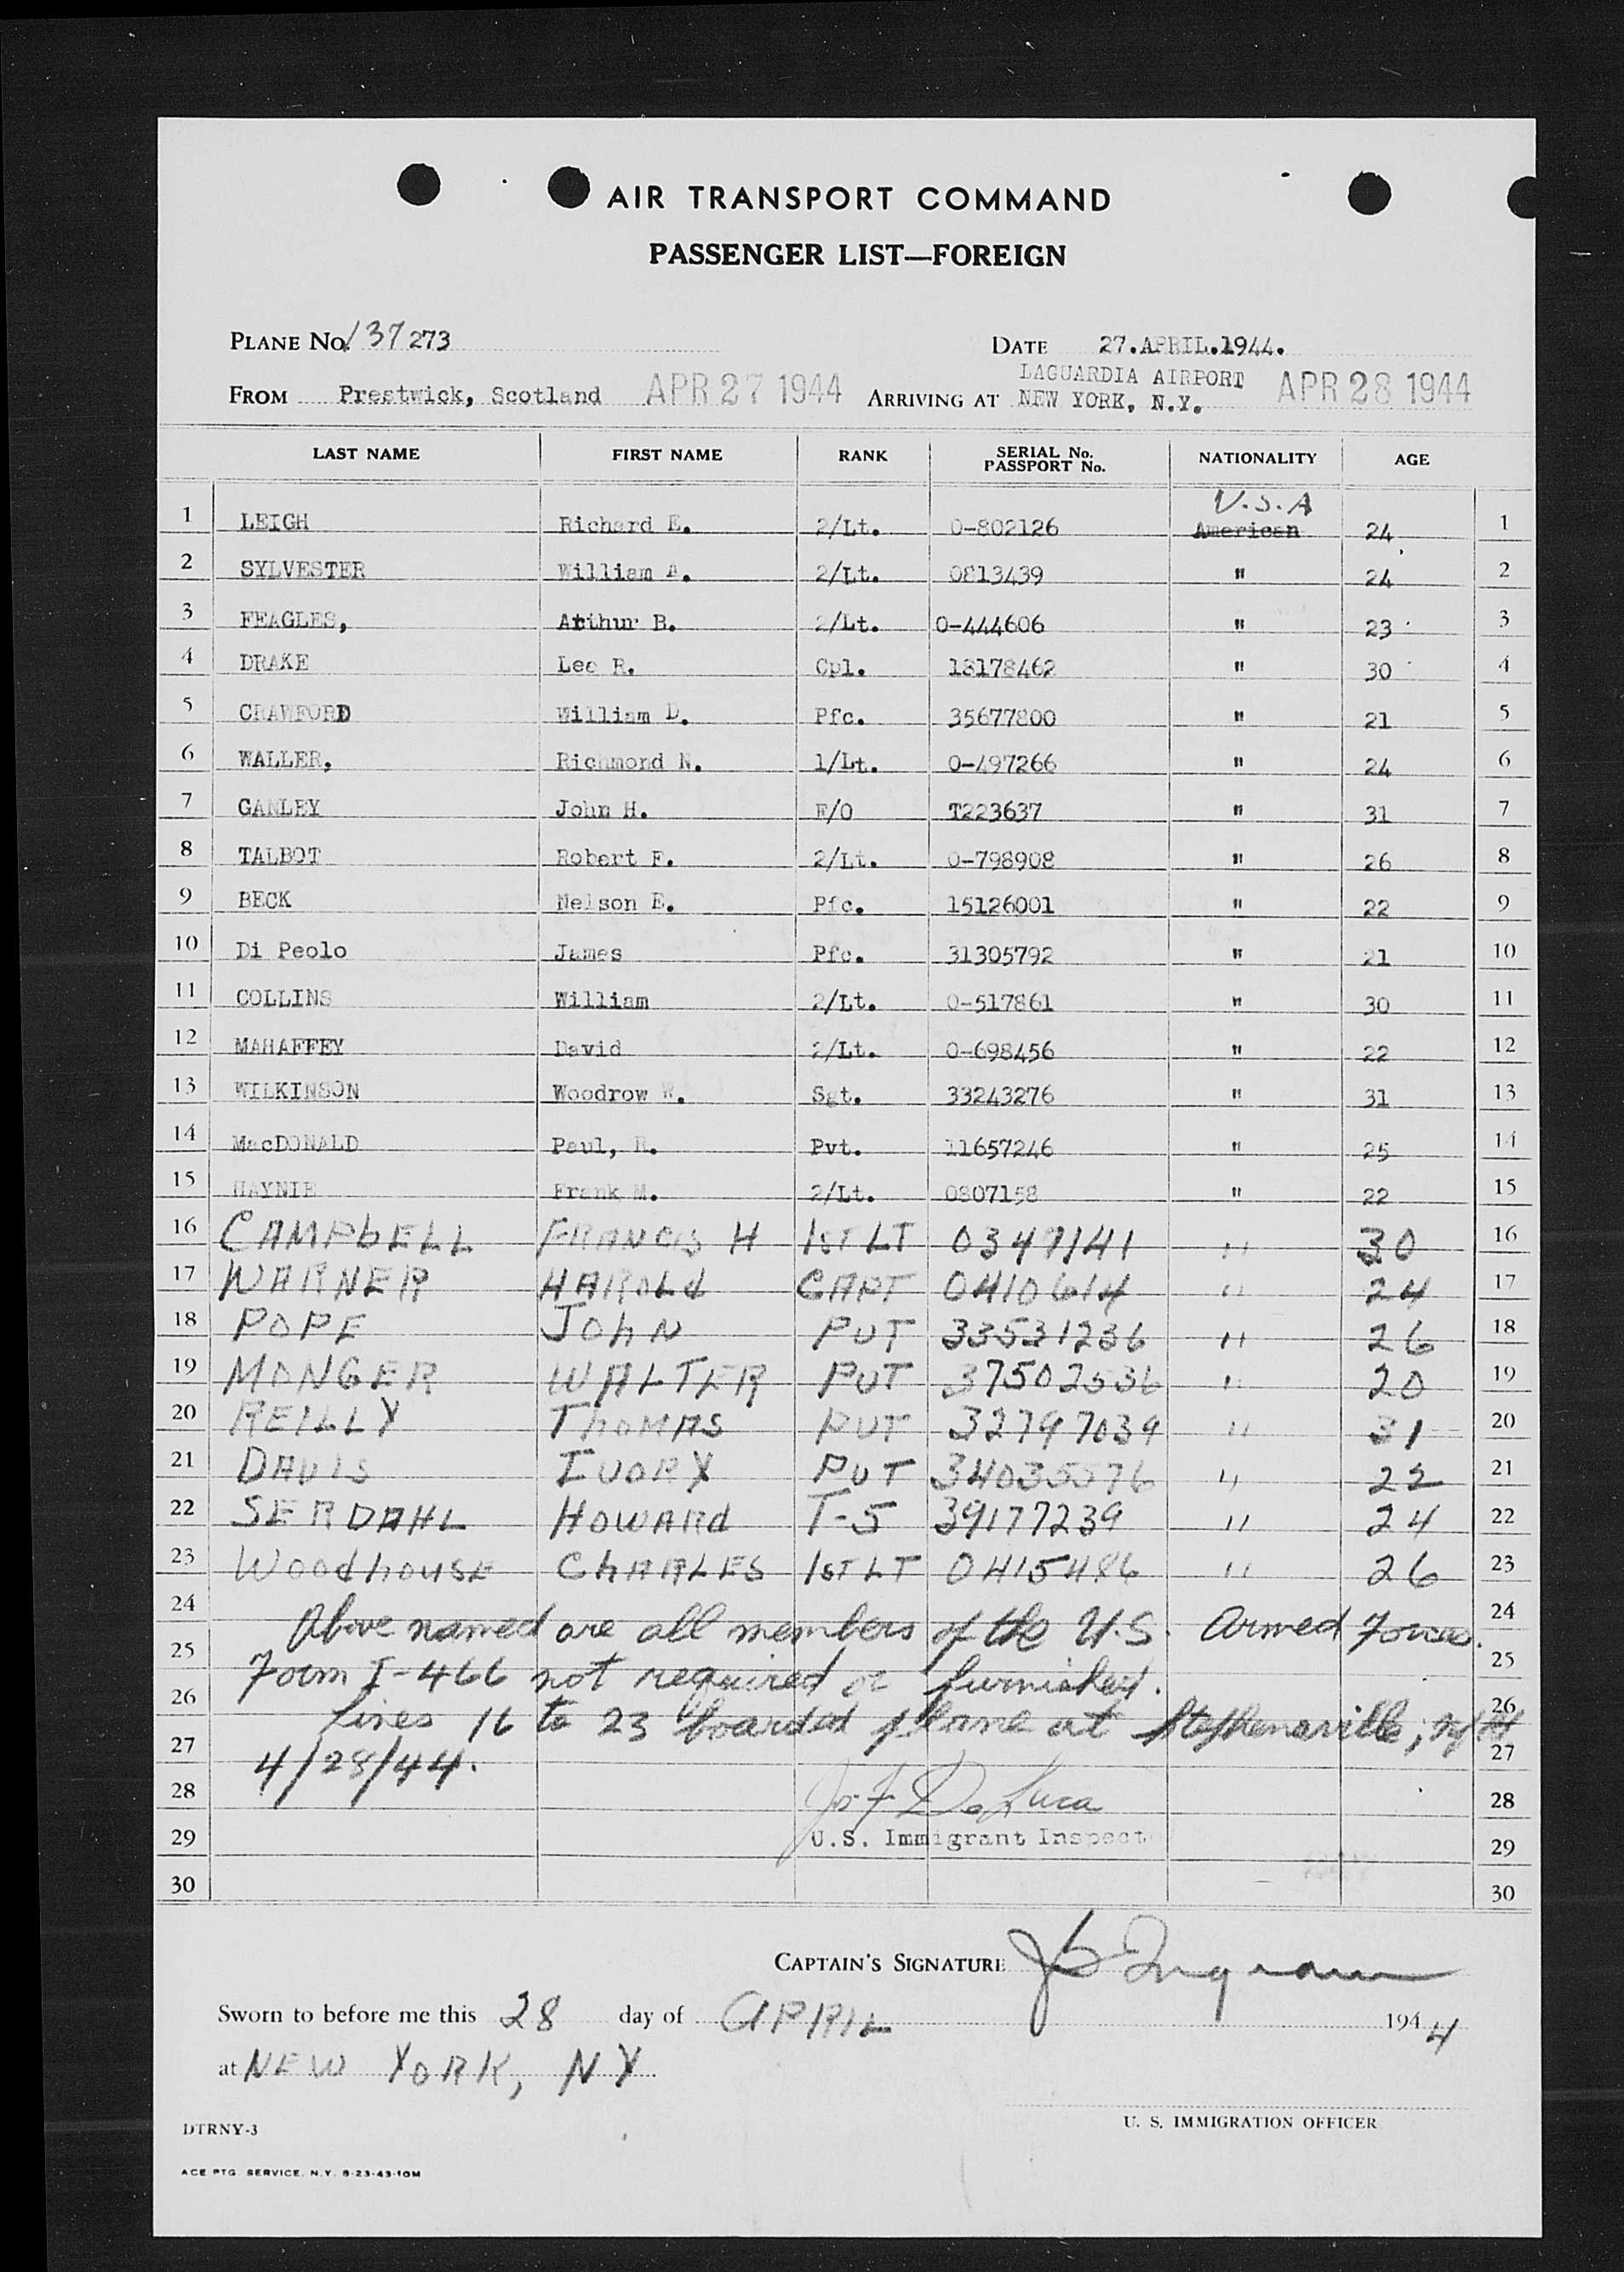 AIR TRANSPORT COMMAND
PASSENGER LIST—FOREIGN
PLANE No. 137273 DATE 27.APRIL.1944.
FROM Prestwick, Scotland APR 27 1944 ARRIVING AT LAGUARDIA AIRPORT NEW YORK, N.Y. APR 28 1944
LAST NAME FIRST NAME RANK SERIAL No. PASSPORT No. NATIONALITY AGE
U.S.A
1 LEIGH Richard E. 2/Lt. O-802126 American 24 1
2 SYLVESTER William A. 2/Lt. 0813439 " 24 2
3 FEAGLES, Arthur B. 2/Lt. O-444606 " 23 3
4 DRAKE Lee R. Cpl. 18178462 " 30 4
5 CRAWFORD William D. Pfc. 35677800 " 21 5
6 WALLER, Richmond N. 1/Lt. O-497266 " 24 6
7 GANLEY John H. F/O T223637 " 31 7
8 TALBOT Robert F. 2/Lt. O-798908 " 26 8
9 BECK Nelson E. Pfc. 15126001 " 22 9
10 Di Peolo James Pfc. 31305792 " 21 10
11 COLLINS William 2/Lt. O-517861 " 30 11
12 MAHAFFEY David 2/Lt. O-698456 " 22 12
13 WILKINSON Woodrow W. Sgt. 33243276 " 31 13
14 MacDONALD Paul, R. Pvt. 11657246 " 25 14
15 HAYNIE Frank M. 2/Lt. 0807158 " 22 15
16 CAMPbELL FRANCIS H 1ST LT 0347141 " 30 16
17 WARNER HAROLd CAPT 0410614 " 24 17
18 POPE JOhN PVT 33531236 " 26 18
19 MONGER WALTER PVT 37502536 " 20 19
20 REILLY ThOMAS PVT 32797039 " 31 20
21 DAVIS IVORY PVT 34035576 " 22 21
22 SERDAHL HOWARd T-5 39177239 " 24 22
23 WoodhousE ChARLES 1ST LT 0415486 " 26 23
24 Above named are all members of the U.S. Armed Forces. 24
25 Form I-466 not required or furnished. 25
26 Lines 16 to 23 boarded plane at Stephenville, Nfld 26
27 4/28/44. 27
28 Jos F De Luca 28
29 U.S. Immigrant Inspect 29
30 30
CAPTAIN'S SIGNATURE Ingram
Sworn to before me this 28 day of APRIL 1944
at NEW YORK, NY
U. S. IMMIGRATION OFFICER
DTRNY-3
ACE PTG SERVICE. N.Y. 8-23-43-10M